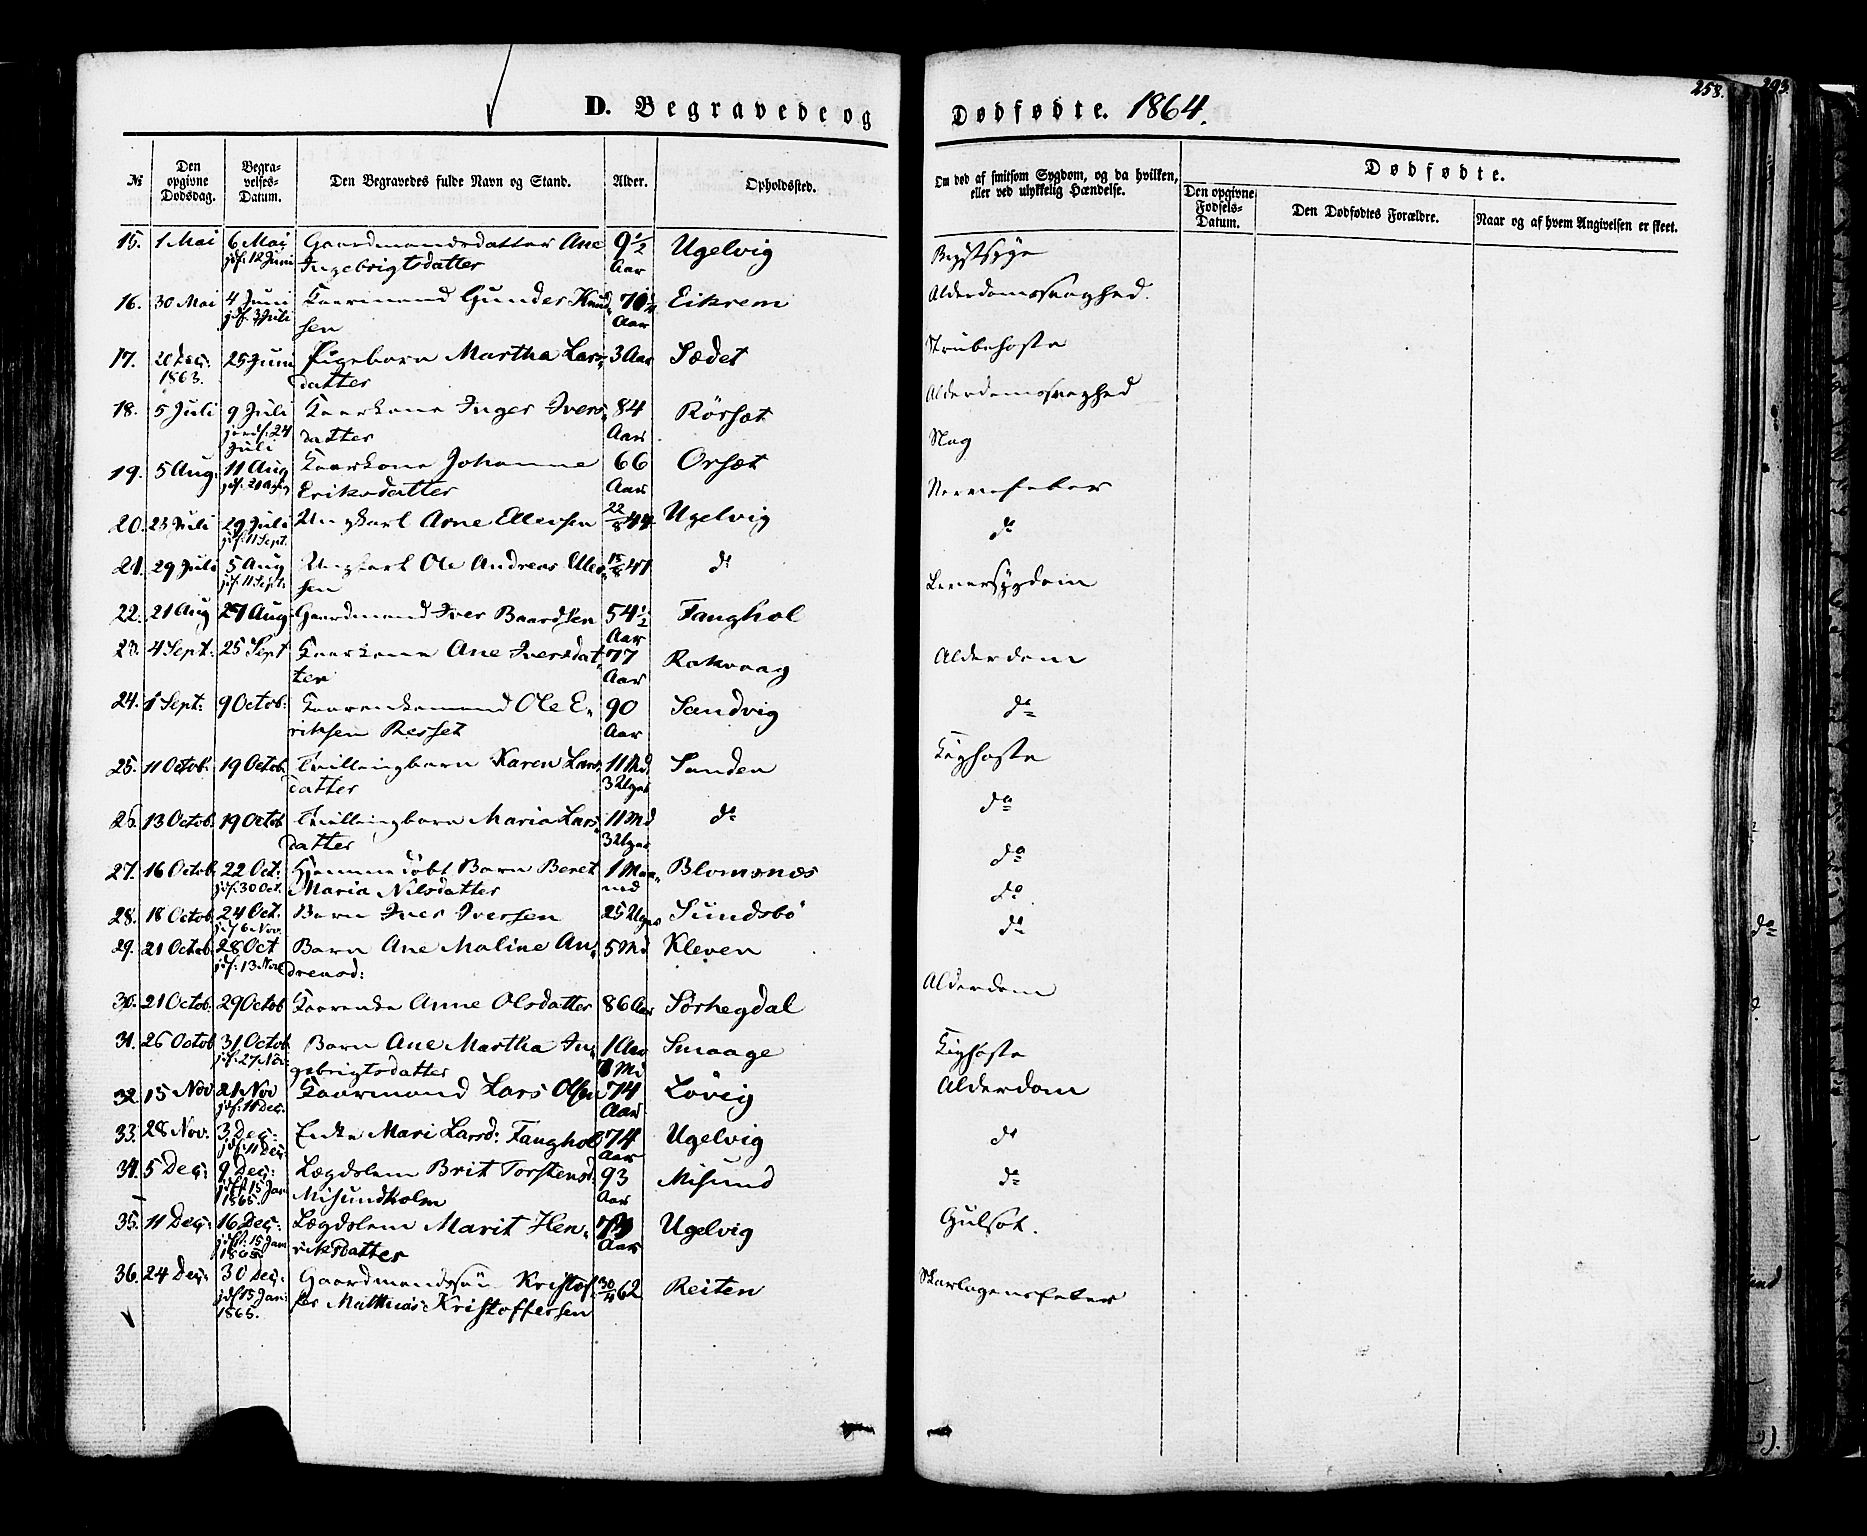 D. Begravede og Dødfødte. 1864.
258.
293.
№
Den opgivne Dødsdag.
Begravelses-Datum.
Den Begravedes fulde Navn og Stand.
Alder.
Opholdssted.
Om død af smitsom Sygdom, og da hvilken, eller ved ulykkelig Hændelse.
Dødfødte.
Den opgivne Fødsels-Datum.
Den Dødfødtes Forældre.
Naar og af hvem Angivelsen er skeet.
15. 1 Mai 6 Mai Gaardmandsdatter Ane 9 1/2 Ugelvig Brystsyge
jdf. 12 Juni Ingebrigtsdatter Aar
16. 30 Mai 4 Juni Kaarmand Gunder Knud- Eikrem Alderdomssvaghed.
jdf. 3 Juli sen Aar
17. 20 Dec. 25 Juni Pigebarn Martha Lars- 3 Aar Sædet Strubehoste
1863. datter
18. 5 Juli 9 Juli Kaarkone Inger Ivers- 84 Rörsæt Alderdomssvaghed
jordf. 24 Juli datter Aar
19. 5 Aug. 11 Aug Kaarkone Johanne 66 Orsæt Slag
jdf. 21 Aug Eriksdatter Aar
20. 23 Juli 29 Juli Ungkarl Arne Ellevsen 22/8 44 Ugelvig Nervefeber
jdf. 11 Sept.
21. 29 Juli 5 Aug Ungkarl Ole Andreas Ellev- 47 do do
jdf. 11 Sept. sen
22. 21 Aug 27 Aug Gaardmand Iver Baardsen 54 1/2 Fanghol Leversygdom
Aar
23. 4 Sept: 25 Sept Kaarkone Ane Iversdat- 77 Rakvaag Alderdom
ter Aar
24. 1 Sept: 9 Octob: Kaarenkemand Ole E- 90 Sandvig do
riksen Resset Aar
25. 11 Octob: 19 Octob. Tvillingbarn Karen Lars- 11 Md. Sanden Kighoste
datter 3 Uger
26. 13 Octob. 19 Octob Tvillingbarn Maria Lars- 11 Md do do
datter 3 Uger
27. 16 Octob. 22 Oct: Hjemmedöbt Barn Beret 1 Maa- Blomsnæs do
jdf. 30 Oct. Maria Nilsdatter ned
28. 18 Octob. 24 Oct. Barn Iver Iversen 25 Uger Sundsbö do
jdf 6 Nov.
29. 21 Octob. 28 Oct Barn Ane Maline An- 5 Md Kleven do
jdf: 13 Nov dreasd:
30. 21 Octob. 29 Octob Kaarenke Anne Olsdatter 86 Aar Sörhegdal Alderdom
31. 26 Octob 31 Octob Barn Ane Martha In- 1 Aar Smaage Kighoste
jdf: 27 Nov: gebrigtsdatter Md
32. 15 Nov 21 Nov Kaarmand Lars Olsen 74 Lövig Alderdom
jdf: 11 Dec. Aar
33. 28 Nov. 3 Dec: Enke Mari Larsd: Fanghol 74 Ugelvig do
jdf. 11 Dec Aar
34. 5 Dec: 9 Dec: Lægdslem Brit Torstensd. 93 Misund do
jdf. 15 Jan 1865. Misundholm Aar
35. 11 Dec: 16 Dec: Lægdslem Marit Hen- Ugelvig Gulsot.
jdf. 15 Jan 1865 riksdatter Aar
36. 24 Dec: 30 Dec: Gaardmandssön Kristof- 30/4 62 Reiten Skarlagensfeber
jdf 15 Jan: 1865. fer Mathias Kristoffersen